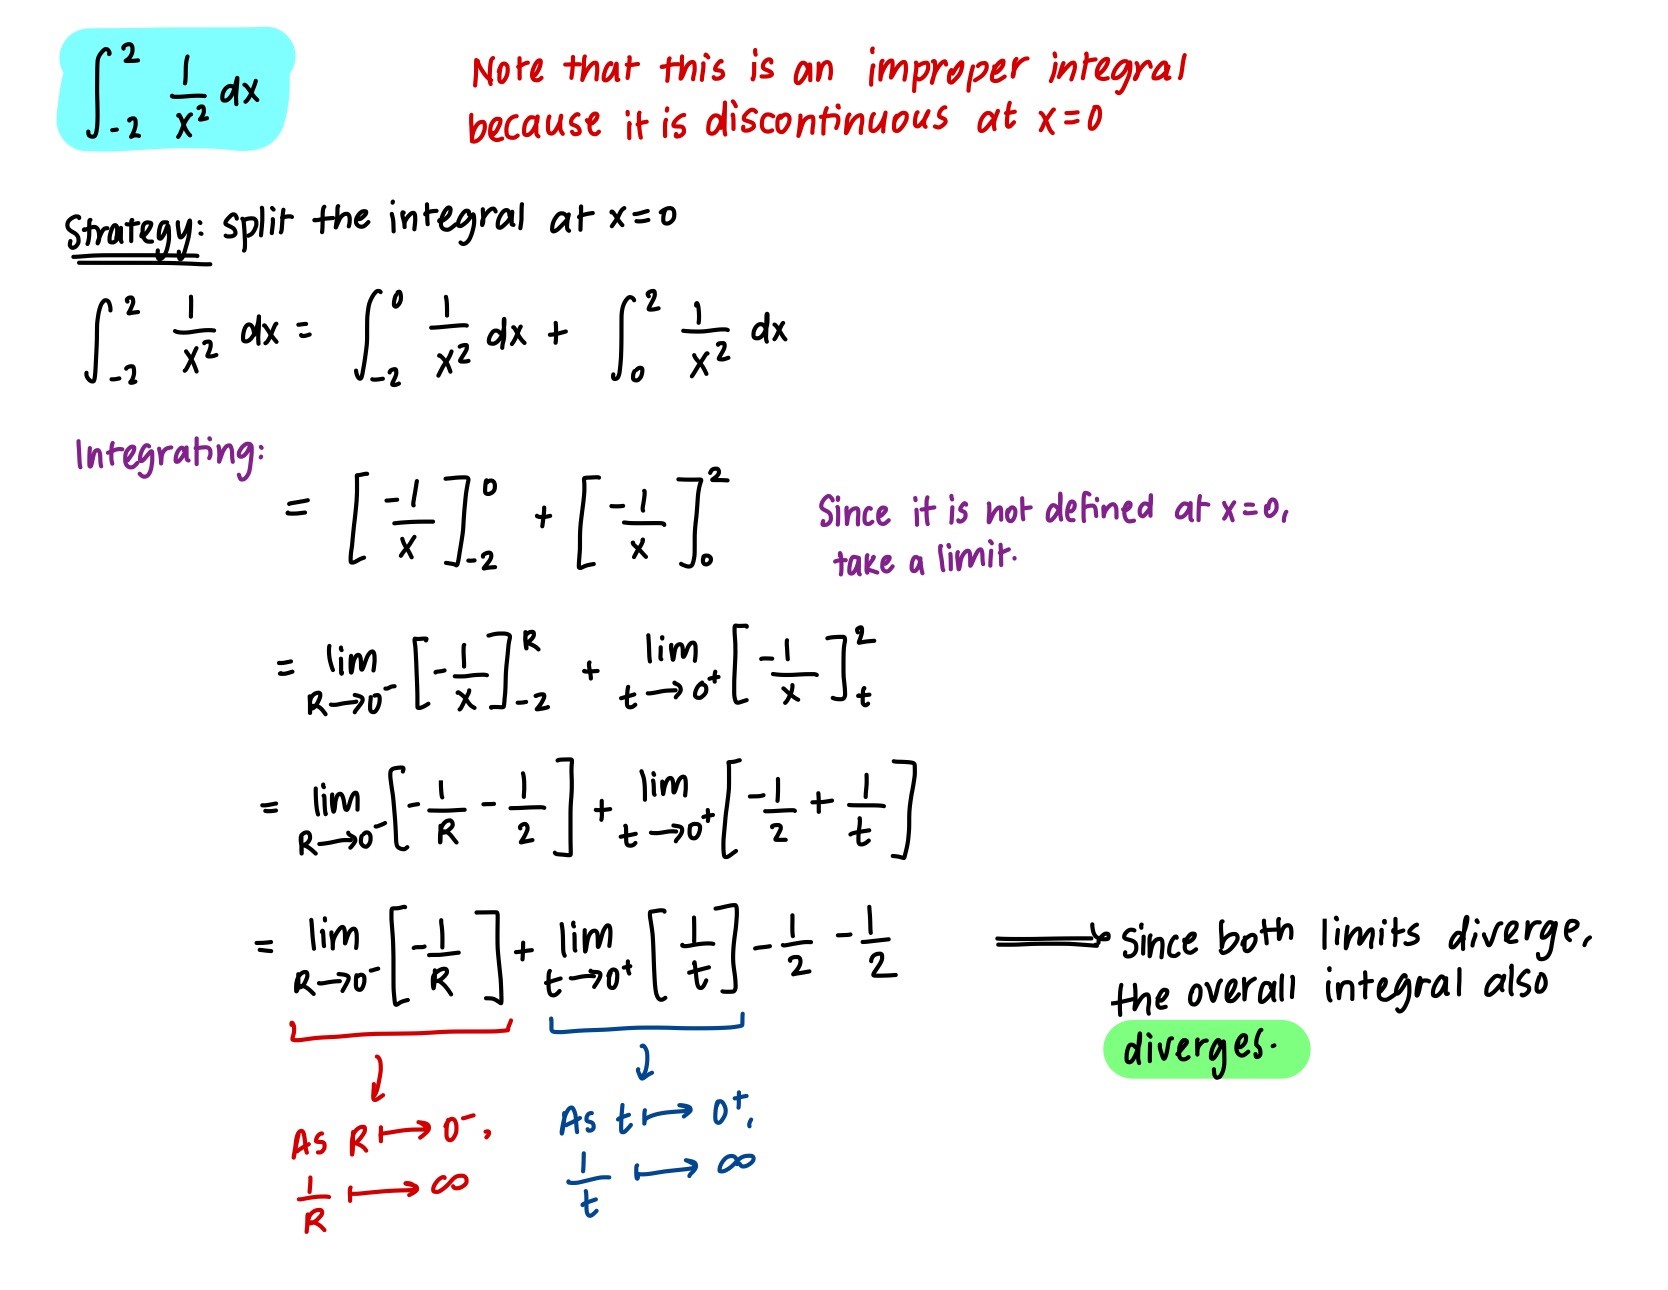 ∫_{-2}^{2} 1/x² dx
Note that this is an improper integral
because it is discontinuous at x=0
Strategy: split the integral at x=0
∫_{-2}^{2} 1/x² dx = ∫_{-2}^{0} 1/x² dx + ∫_{0}^{2} 1/x² dx
Integrating:
= [-1/x]_{-2}^{0} + [-1/x]_{0}^{2}
Since it is not defined at x=0,
take a limit.
= lim_{R→0⁻} [-1/x]_{-2}^{R} + lim_{t→0⁺} [-1/x]_{t}^{2}
= lim_{R→0⁻} [-1/R - 1/2] + lim_{t→0⁺} [-1/2 + 1/t]
= lim_{R→0⁻} [-1/R] + lim_{t→0⁺} [1/t] - 1/2 - 1/2
⟹ Since both limits diverge,
the overall integral also
diverges.
As R ↦ 0⁻,
1/R ↦ ∞
As t ↦ 0⁺,
1/t ↦ ∞